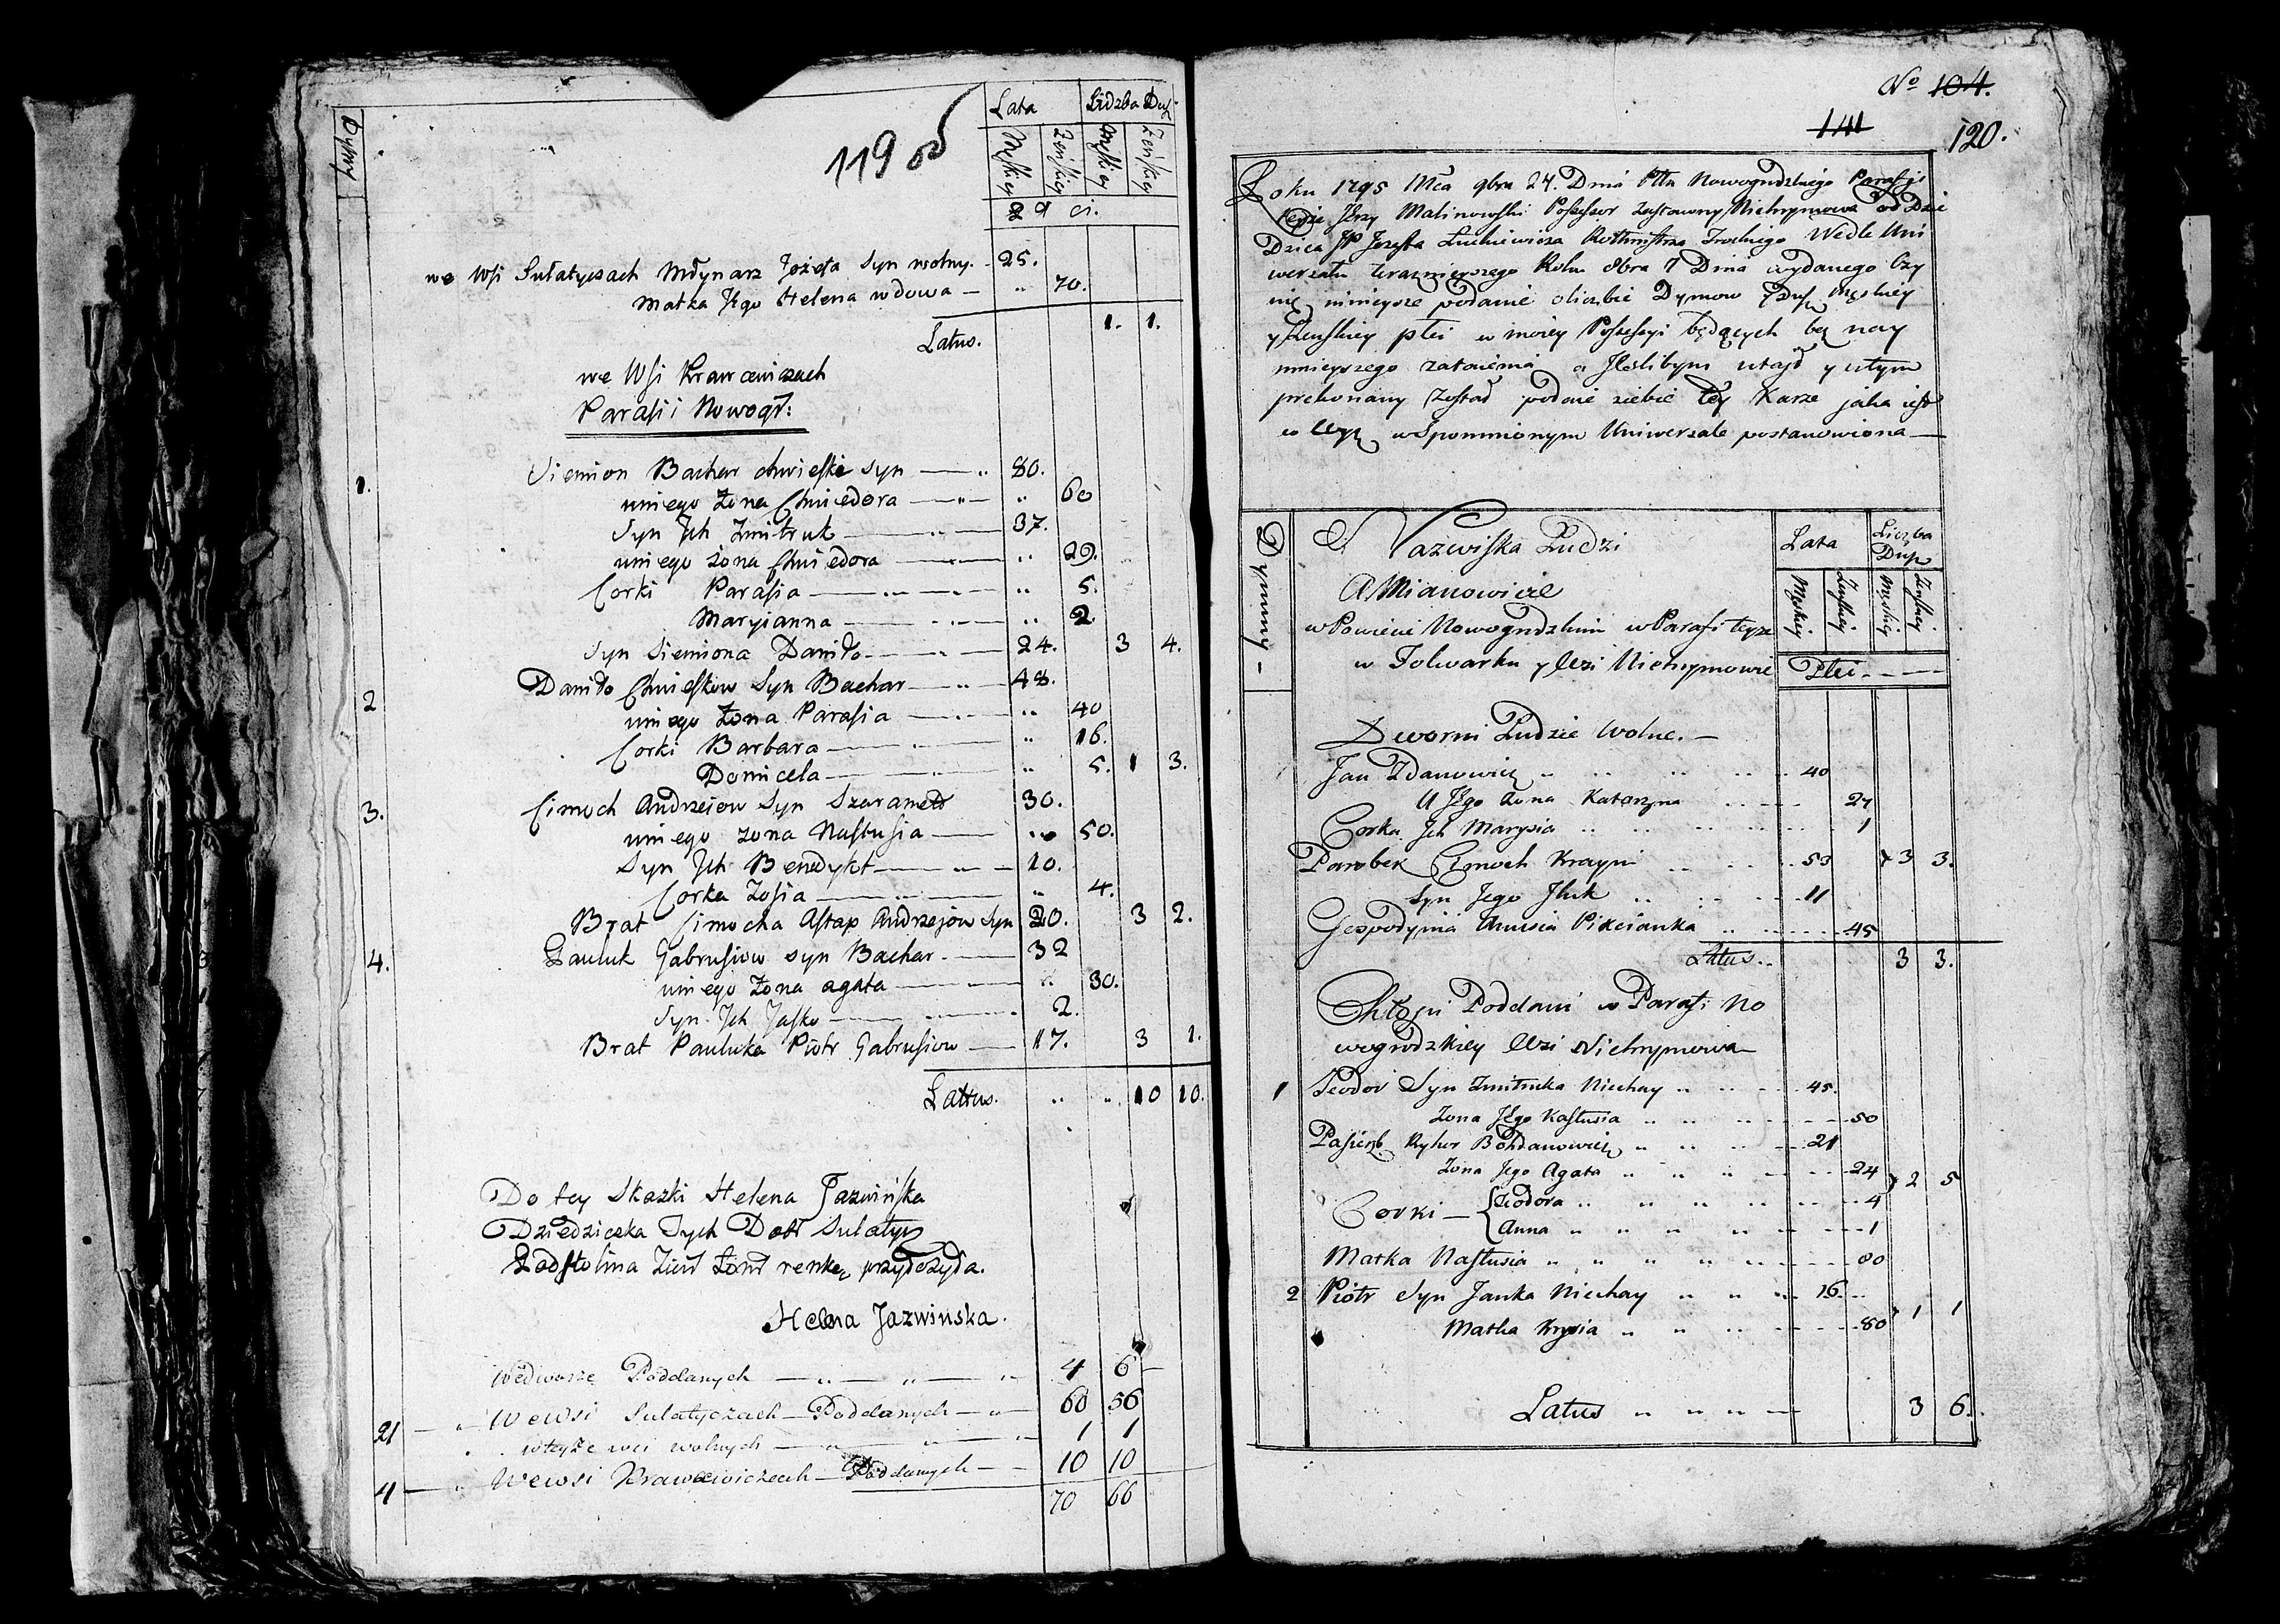 119 od
Dymy
Lata Lidzba Dusz
Męskiey Żeńskiey Męskiey Żeńskiey
we Wsi Sulatyczach Młynarz Józefa Syn wolny. - 25.
Matka Jego Helena wdowa — " 70.
Latus. 1. 1.
we Wsi Krawcewiczach
Parafii Nowogr:
1. Siemion Bachar Syn — " 80.
uniego Żona Chwiedora — " — " 60
Syn Jch Zmitruk — " — 37.
uniego żona Chwiedora — " 29.
Corki Parasia — " — " — " 5.
Maryianna — " — " 2.
Syn Siemiona Daniło — " — 24. 3 4.
2 Daniło Chwieskow Syn Bachar — " — 48.
uniego Żona Parasia — " — " 40
Corki Barbara — " — " 16.
Domicela — " — " 5. 1 3.
3. Cimoch Andrzeiow Syn 30.
uniego żona Nastusia — " 50.
Syn Jch Benedykt — " — 10.
Corka Zosia — " 4.
Brat Cimocha Astap Andrzejow Syn 20. 3 2.
4. Pauluk Gabrusiow syn Bachar — 32
uniego Żona agata — " 30.
Syn Jch Jasko — " — 2.
Brat Pauluka Piotr Gabrusiow — 17. 3 1.
Lattus. " " 10 10.
Do tey Skazki Helena Jazwińska
Dziedziczka Tych Dobr Sulatycz
renkę przyłożyła.
Helena Jazwinska.
Wedworze Poddanych — " — " — " 4 6 —
21 — " Wewsi Sulatyczach — Poddanych — " 60 56
wteyże wsi wolnych — " — " — " 1 1
4 — " Wewsi Krawcewiczach — Poddanych — 10 10
70 66
No 104.
141 120.
Roku 1795 Mca 9bra 24. Dnia Nowogrodzkiego Parafji
Jerzy Malinowski Possessor Zastawny Niehrymowa od Dzie
Dzica JP Jozefa Łuckiewicza Rothmistrza Wedle Uni
wersału teraznieyszego Roku 8bra 7 Dnia wydanego Czy
nię ninieysze podanie oliczbie Dymow y Dusz męskiey
y Żenskiey płci w moiey Possessyi będących bez nay
mnieyszego zataienia a Jeslibym utaił y wtym
prekonany został podaie siebie tey Karze jaka iest
w wyż wspomnionym Uniwersale postanowiona —
Dymmy — Nazwiska Ludzi Lata Liczba Dusz
A Mianowicie Męskiey Żenskiey Męskiey Żenskiey
w Powiecie Nowogrodzkim w Parafi teyze
w Folwarku y Wsi Niehrymowie Płci - - - -
Dworni Ludzie Wolne. —
Jan Zdanowicz " " " " 40
U Jego Zona Katarzyna - - - 27
Corka Jch Marysia " " " " 1
Parobek Cimoch " " 53 3 3.
Syn Jego Jluk " " 11
Gospodynia Anusia " " 45
Latus.. 3 3.
Chłopi Poddani w Parafi No
wogrodzkiey Wsi Niehrymowa
1 Teodor Syn Zmitruka Niechay " " 45.
Zona Jego Kastusia " " " 50
Pasierb Ryhor Bohdanowicz " " 21
Zona Jego Agata " " " 24 2 5
Corki — { Teodora " " " " 4
Anna " " " " " 1
Matka Nastusia " " " " 80
2 Piotr Syn Janka Niechay " " 16.
Matka Krysia " " " 80 1 1
Latus " " " — 3 6.